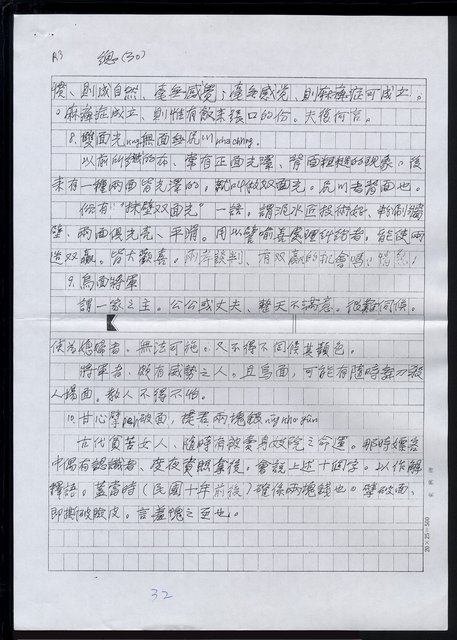 A3 總(30)
慣、則成自然、毫無感覺；毫無感覺、則麻痺症可成立。
。麻痺症成立、則惟有飯來張口的份。夫復何言。
8.雙面光 無面無尻川 kha chhng.
以前所織的布、常有正面光澤、背面粗糙的現象。後
來有一種兩面皆光澤的，就叫做双面光。尻川者背面也。
俗有"抹壁双面光"一語。謂泥水匠技術好、粉刷牆
壁、兩面俱光亮、平滑。用以譬喻善處理糾紛者，能使兩
造双贏。皆大歡喜。兩岸談判、有双贏的机會嗎？
9.烏面將軍
謂一家之主。公公或丈夫、整天不滿意。很難伺候。
為媳婦者。無法可施。又不得不伺候其顏色。
將軍者、頗有威勢之人。且烏面，可能有隨時
人場面。教人不得不怕。
10.甘心擘 peh 破面，提君兩塊銀
古代貧苦女人、隨時有被賣身妓院之命運。那時嫖客
中偶有認識者、度夜費照算後，會說上述十個字。以作解
釋語。蓋當時(民國十年前後)確係兩塊錢也。擘破面、
即撕破臉皮。言羞愧之至也。
20×25=500
32